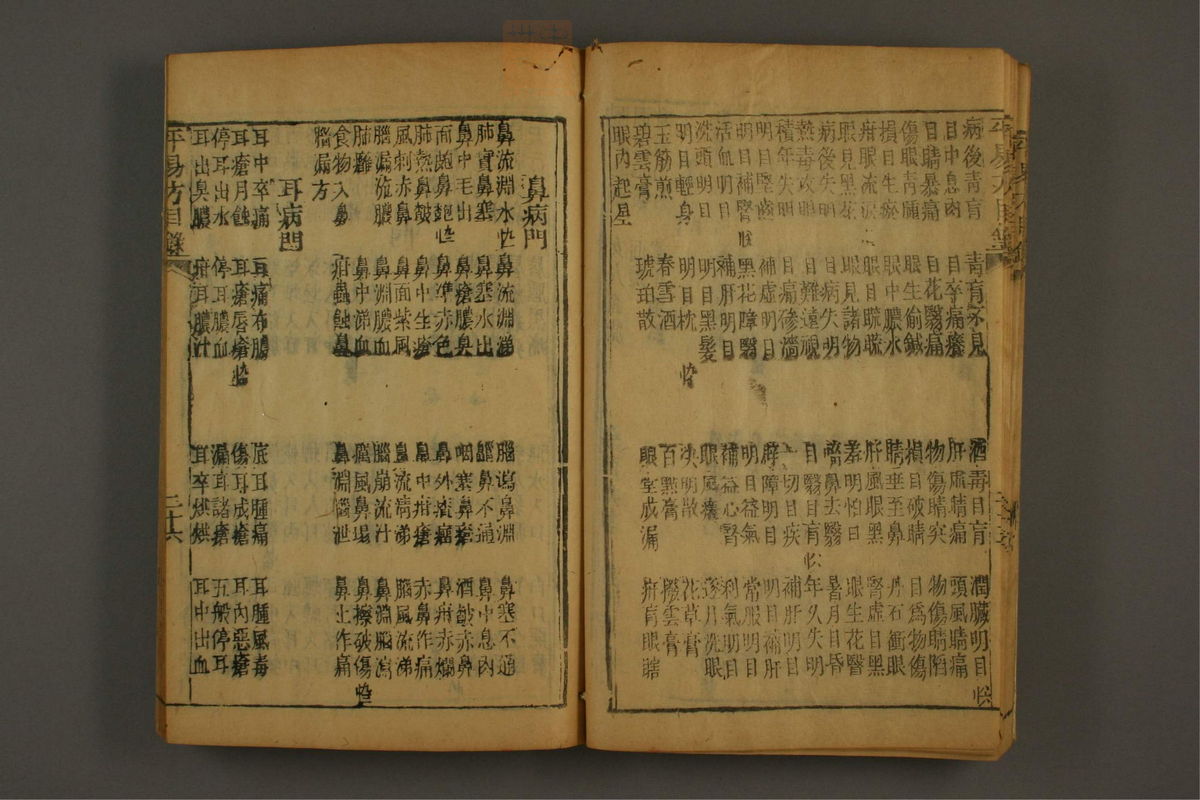 病後青盲 青盲不見 酒毒目盲 潤臟明目
目中息肉 目卒痛癢 肝虛睛痛 頭風睛痛
目睛暴痛 目花翳痛 物傷睛突 物傷睛陷
傷眼青腫 眼生偷鍼 損目破睛 目爲物傷
損目生瘀 眼中膿水 睛垂至鼻 丹石衝眼
疳眼流淚 眼目䀮䀮 肝風眼黑 腎虛目黑
眼見黑花 眼見諸物 羞明怕日 眼生花翳
病後失明 目病失明 㗜鼻去翳 每月目昏
熱毒攻眼 目難遠視 目翳目盲 年久失明
積年失明 目痛磣澀 一切目疾 補肝明目
明目堅齒 補虛明目 障障明目 明目補肝
明目補腎 黑花障翳 明目益氣 常服明目
活血明目 補肝明目 補益心腎 利氣明目
洗頭明目 明目黑髮 眼風癢 逐月洗眼
明目輕身 明目枕 決明散 花草膏
玉筋煎 春雪酒 百點膏 撥雲膏
碧雲膏 琥珀散 眼堂成漏 疳盲眼瞎
眼內起星
鼻病門
鼻流淵水 鼻流淵涕 腦瀉鼻淵 鼻塞不通
肺實鼻塞 鼻塞水出 齆鼻不通 鼻中息肉
鼻中毛出 鼻瘡膿臭 咽塞鼻瘡 酒皶赤鼻
面皰鼻皰 鼻準赤色 鼻外查瘤 鼻疳赤爛
肺熱鼻皶 鼻中生瘡 鼻中疳瘡 赤鼻作痛
風刺赤鼻 鼻面紫風 鼻流清涕 腦風流涕
腦漏流膿 鼻淵膿血 腦崩流汁 鼻淵腦瀉
肺癰 鼻中涕血 癘風鼻塌 鼻擦破傷
食物入鼻 疳蟲蝕鼻 鼻淵腦泄 鼻上作痛
腦漏方
耳病門
耳中卒痛 耳痛有膿 底耳腫痛 耳腫風毒
耳瘡月蝕 耳瘡唇瘡 傷耳成瘡 耳內惡瘡
停耳出水 停耳膿血 漏耳諸瘡 五般停耳
耳出臭膿 疳耳膿汁 耳卒烘烘 耳中出血
平易方目錄
二十六